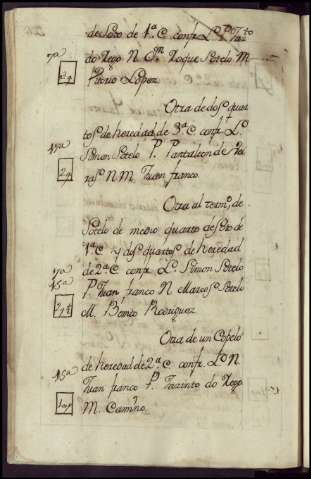 de Soto de 1ª C confr. L. P.
do Rego N. Jn. Roque Sotelo M.
1ª
Pitorio Lopez
2q
Otra de dos quar
tos. de heredad de 3ª C confr. L.
15ª
Simon Sotelo P. Pantaleon de
N. M. Juan franco
2q
Otra al term.o de
Sotelo de medio quarto de Soto de
1ª C y dos quartos. de heredad
de 2ª C confr. L. Simon Sotelo
15ª
P. Juan franco N. Marcos Sotelo
M. Benito Rodriguez
Otra de un Copelo
de heredad de 2ª C confr. L. N.
15ª
Juan franco P. Jacinto do Rego
M. Camino